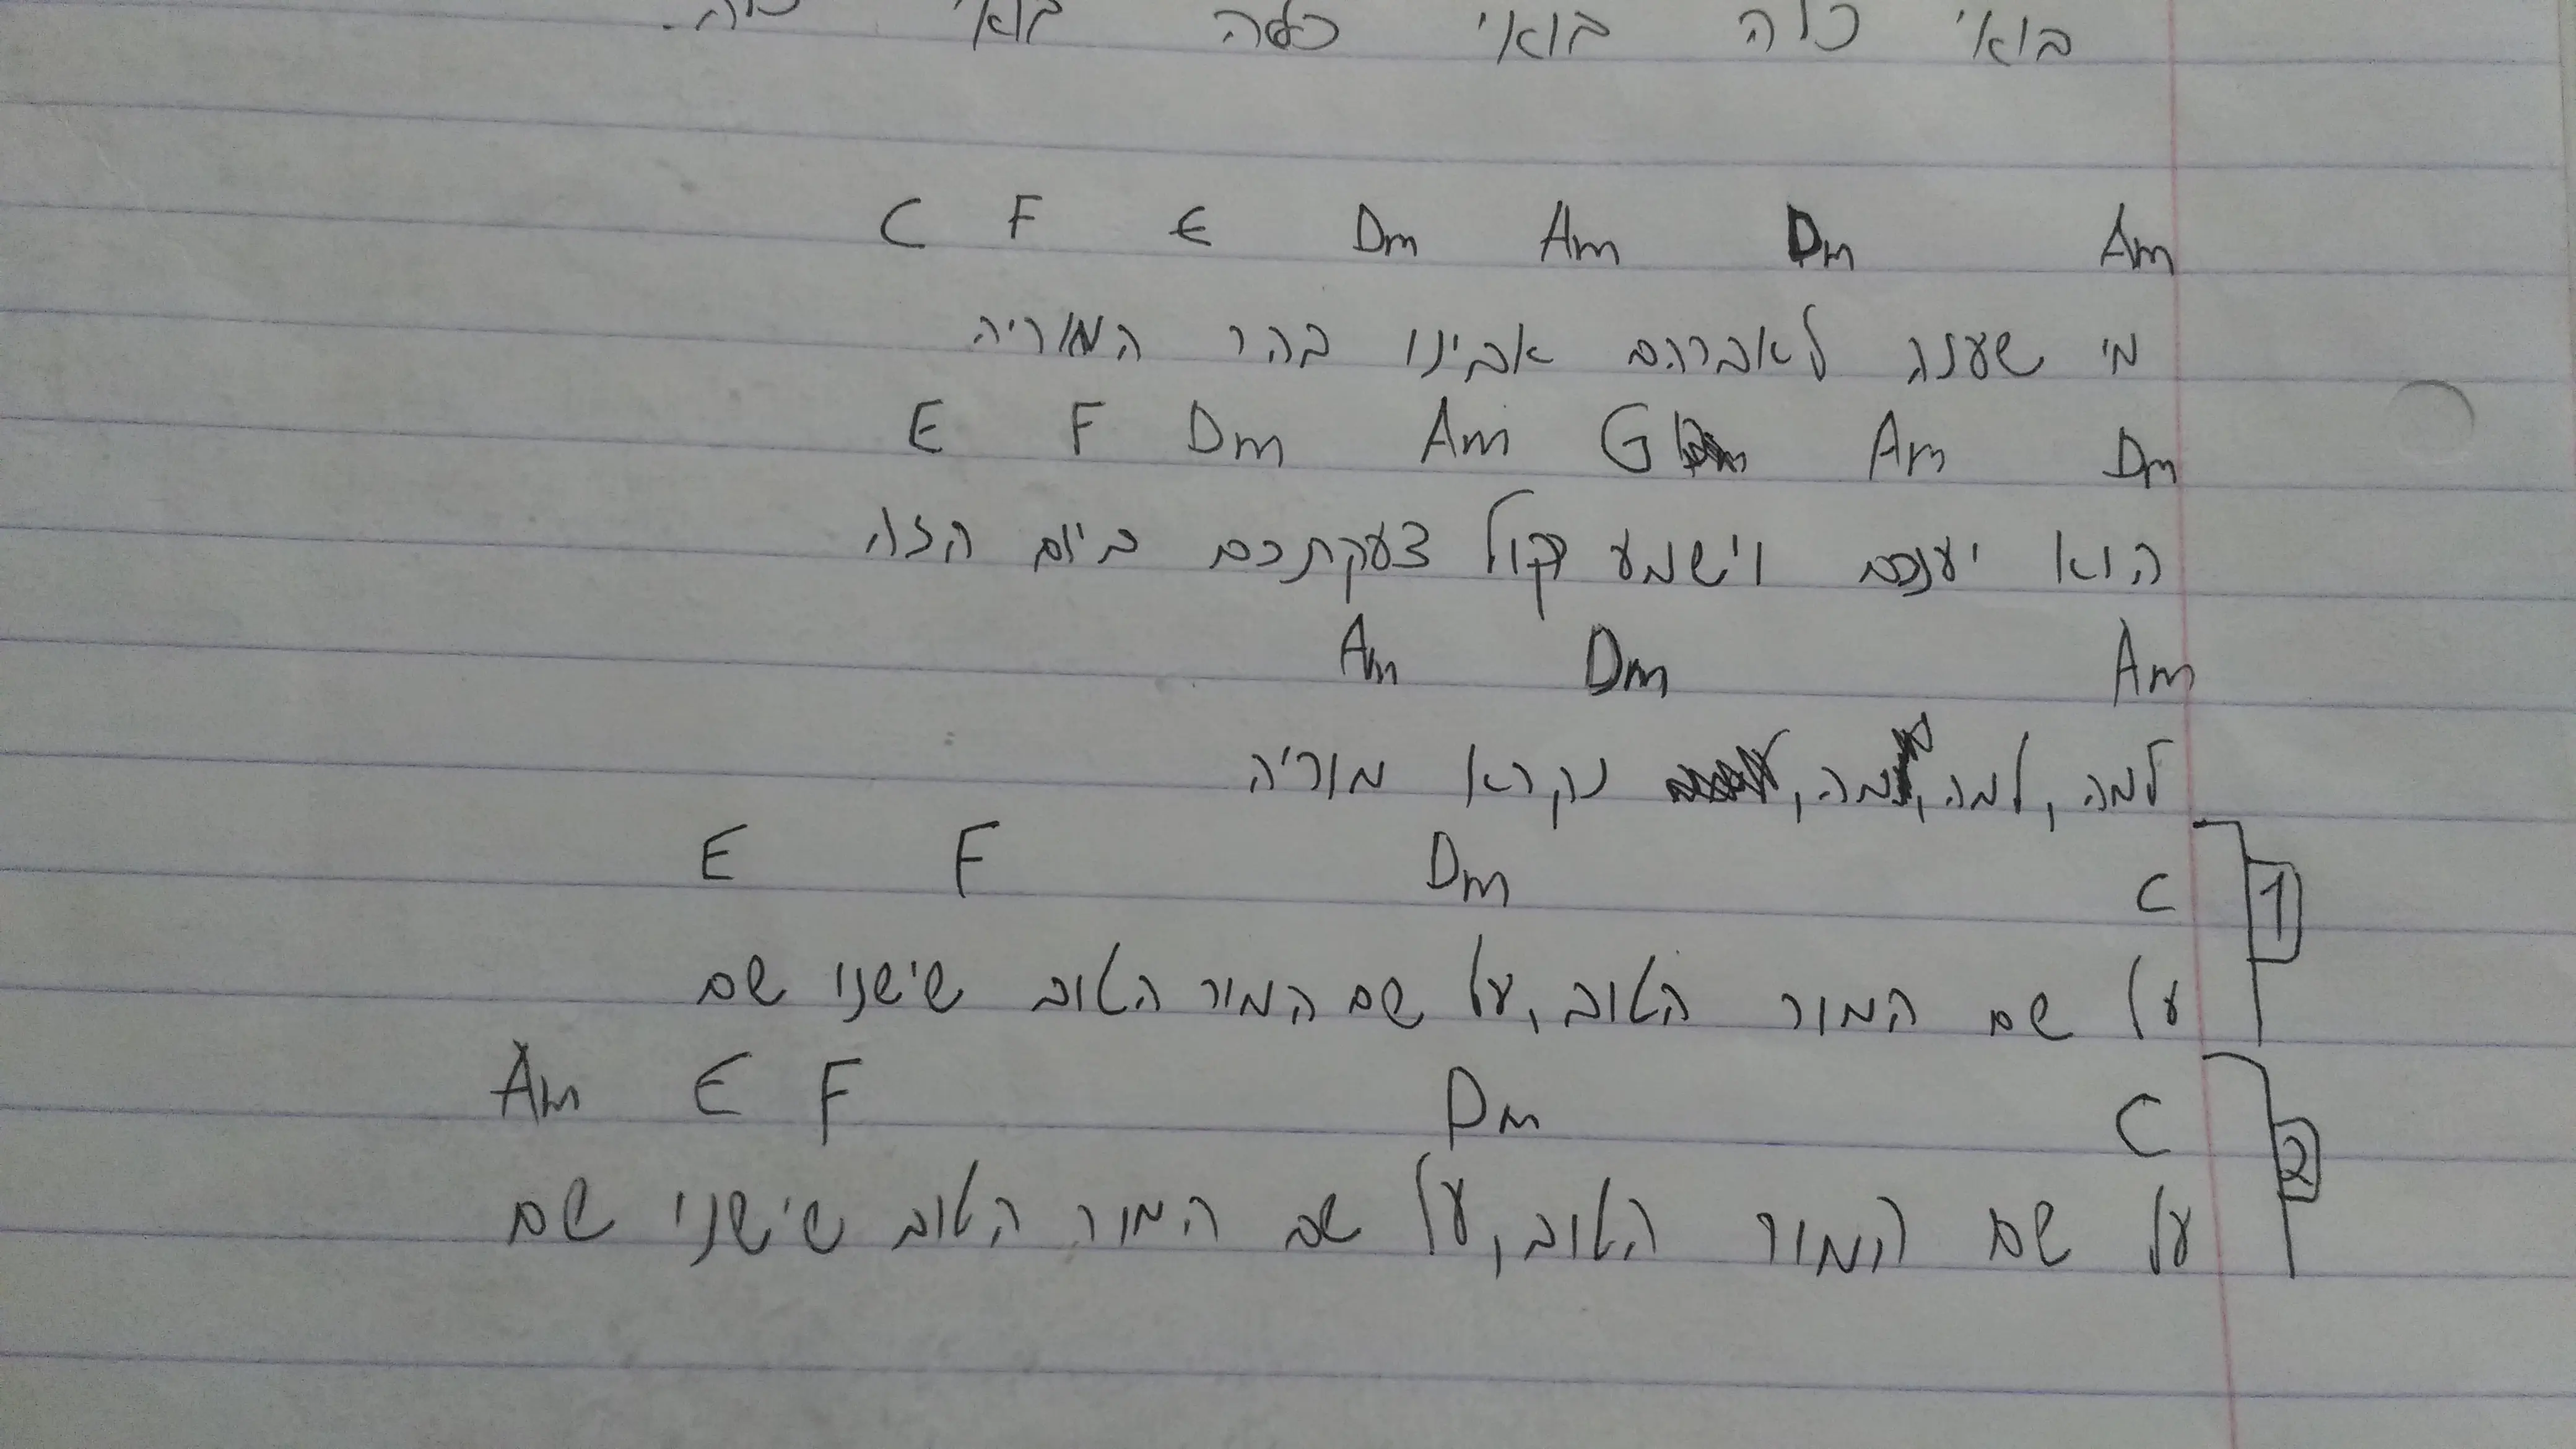 בואי כלה בואי כלה בואי כלה.
Am Dm Am Dm E F C
מי שענה לאברהם אבינו בהר המוריה
Dm Am G Am Dm F E
הוא יענכם וישמע קול צעקתכם ביום הזה
Am Dm Am
למה, למה, למה, נקרא מוריה
1
C Dm F E
על שם המור הטוב, על שם המור הטוב שישנו שם
2
C Dm F E Am
על שם המור הטוב, על שם המור הטוב שישנו שם